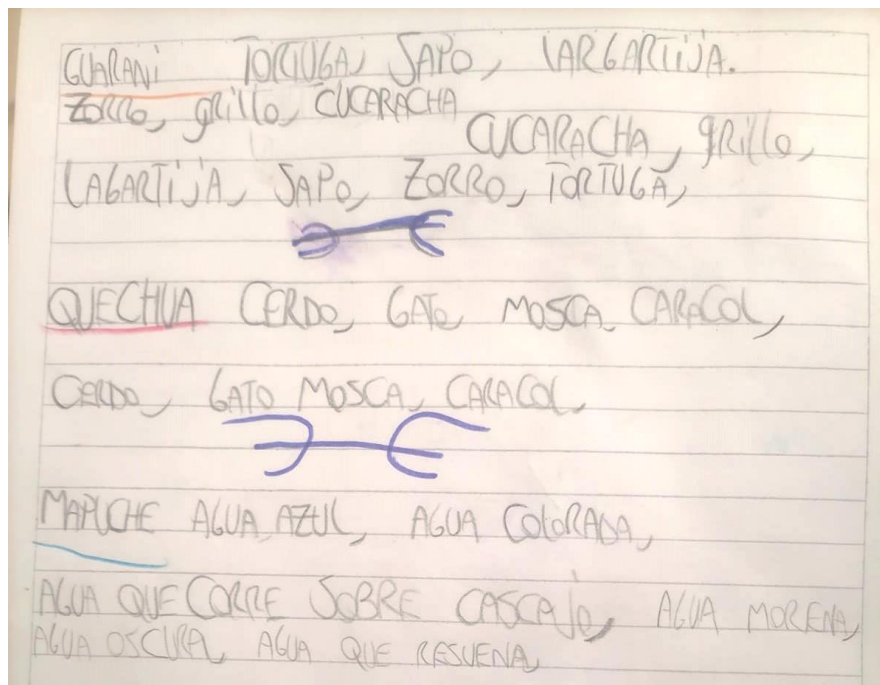 GUARANI TORTUGA, SAPO, LARGARTIJA.
ZORRO, grillo, CUCARACHA
CUCARACHA, grillo,
LAGARTIJA, SAPO, ZORRO, TORTUGA,
QUECHUA CERDO, GATO MOSCA, CARACOL,
CERDO, GATO MOSCA, CARACOL,
MAPUCHE AGUA AZUL, AGUA COLORADA,
AGUA QUE CORRE SOBRE CASCAJO, AGUA MORENA,
AGUA OSCURA, AGUA QUE RESUENA,